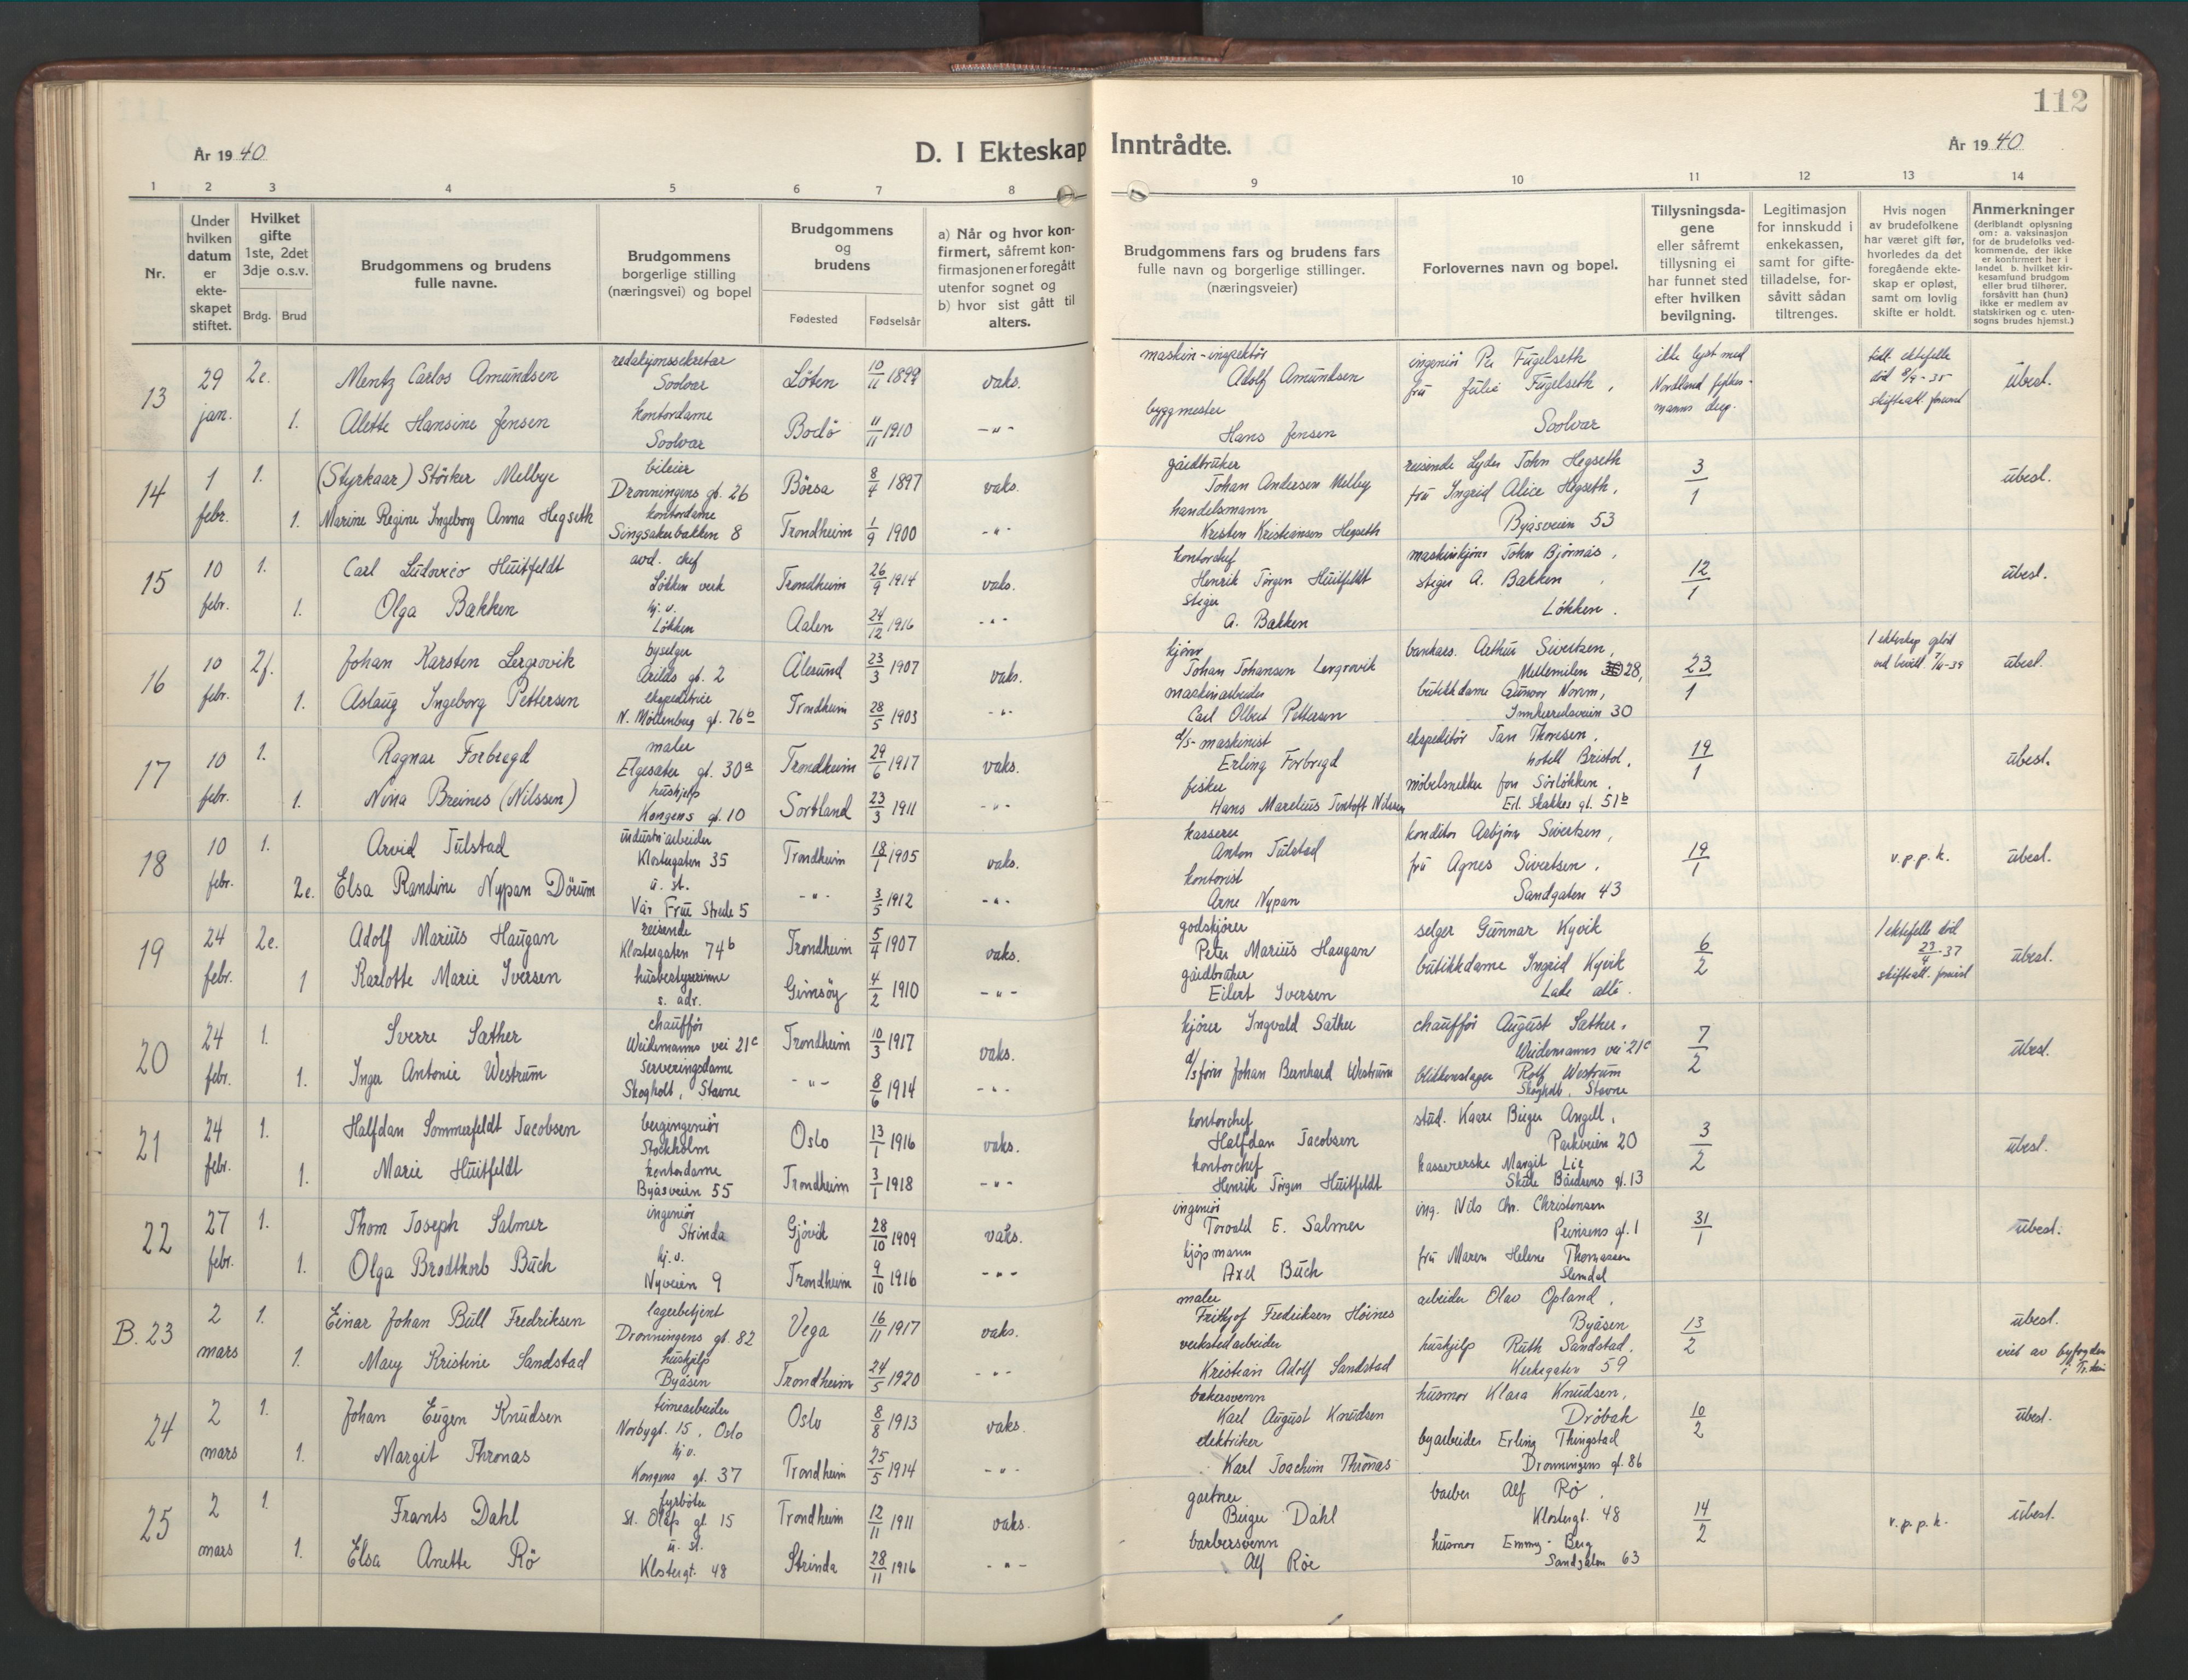 112
År 1940
D. I Ekteskap Inntrådte.
År 1940
1 2 3 4 5 6 7 8 9 10 11 12 13 14
Nr.
Under hvilken datum er ekteskapet stiftet.
Hvilket gifte 1ste, 2det 3dje o.s.v.
Brdg. Brud
Brudgommens og brudens fulle navne.
Brudgommens borgerlige stilling (næringsvei) og bopel
Brudgommens og brudens
Fødested Fødselsår
a) Når og hvor konfirmert, såfremt konfirmasjonen er foregått utenfor sognet og b) hvor sist gått til alters.
Brudgommens fars og brudens fars fulle navn og borgerlige stillinger. (næringsveier)
Forlovernes navn og bopel.
Tillysningsdagene eller såfremt tillysning ei har funnet sted efter hvilken bevilgning.
Legitimasjon for innskudd i enkekassen, samt for giftetilladelse, forsåvitt sådan tiltrenges.
Hvis nogen av brudefolkene har været gift før, hvorledes da det foregående ekteskap er opløst, samt om lovlig skifte er holdt.
Anmerkninger (deriblandt oplysning om: a. vaksinasjon for de brudefolks vedkommende, der ikke er konfirmert her i landet b. hvilket kirkesamfund brudgom eller brud tilhører, forsåvitt han (hun) ikke er medlem av statskirken og c. utensogns brudes hjemst.)
13 29 jan. 2e. Mentz Carlos Amundsen redaksjonssekretær Svolvær Løten 10/11 1899 vaks. maskin-inspektør Adolf Amundsen ingeniør Per Fugelseth ikke lyst med tidl. ektefelle ubesl.
1. Alette Hansine Jensen kontordame Svolvær Bodø 11/11 1910 -"- byggmester Hans Jensen fru Julie Fugelseth, Svolvær Nordland fylkesmanns disp. død 8/9-35 skifteatt. forevist
14 1 febr. 1. (Styrkaar) Störker Melbye bileier Dronningens gt. 26 Börsa 8/4 1897 vaks. gårdbruker Johan Andersen Melby reisende Lyder John Hegseth 3/1 ubesl.
1. Marine Regine Ingeborg Anna Hegseth kontordame Singsakerbakken 8 Trondheim 1/9 1900 -"- handelsmann Kristen Kristiansen Hegseth fru Ingrid Alice Hegseth, Byåsveien 53
15 10 febr. 1. Carl Ludovico Huitfeldt avd. chef Løkken verk Trondheim 26/9 1914 vaks. kontorchef Henrik Jörgen Huitfeldt maskinkjører John Bjørnås, 12/1 ubesl.
1. Olga Bakken hj. v. Løkken Aalen 24/12 1916 -"- stiger A. Bakken stiger A. Bakken, Løkken.
16 10 febr. 2f. Johan Karsten Lergrovik byselger Arilds gt. 2 Ålesund 23/3 1907 vaks. kjører Johan Johansen Lergrovik bankass. Arthur Sivertsen, Mellemilen 28, 23/1 1 ekteskap opløst ved bevill. 7/11-39 ubesl.
1. Aslaug Ingeborg Pettersen ekspeditrice N. Møllenberg gt. 76b Trondheim 28/5 1903 -"- maskinarbeider Carl Olbert Pettersen butikkdame Gunvor Norem, Innherredsveien 30
17 10 febr. 1. Ragnar Forbregd maler Elgesæter gt. 30a Trondheim 29/6 1917 vaks. d/s-maskinist Erling Forbregd ekspeditør Jan Thoresen, hotell Bristol. 19/1 ubesl.
1. Nina Breines (Nilssen) hushjelp Kongens gt. 10 Sortland 23/3 1911 -"- fisker Hans Marelius Tentoft Nilssen møbelsnekker Jon Sörløkken, Erl. Skakkes gt. 51b
18 10 febr. 1. Arvid Tulstad industriarbeider Klostergaten 35 Trondheim 18/1 1905 vaks. kasserer Anton Tulstad konditor Asbjørn Sivertsen, 19/1 v.p.p.k. ubesl.
2e. Elsa Randine Nypan Dörum u. st. Vår Frue Strede 5 -"- 3/5 1912 -"- kontorist Arne Nypan fru Agnes Sivertsen, Sandgaten 43
19 24 febr. 2e. Adolf Marius Haugan reisende Klostergaten 74b Trondheim 5/4 1907 vaks. godskjører Peter Marius Haugan selger Gunnar Kyvik 6/2 1 ektefelle død 23/4-37 skifteatt. forevist ubesl.
1 Karlotte Marie Iversen husbestyrerinne s. adr. Gimsöy 4/2 1910 -"- gårdbruker Eilert Iversen butikkdame Ingrid Kyvik Lade allé.
20 24 febr. 1. Sverre Sæther chauffør Weidemanns vei 21c Trondheim 10/3 1917 vaks. kjører Ingvald Sæther chauffør August Sæther, Weidemanns vei 21c 7/2 ubesl.
1. Inger Antonie Westrum serveringsdame Skogholt, Stavne -"- 8/6 1914 -"- d/s fører Johan Bernhard Westrum blikkenslager Rolf Westrum Skogholt, Stavne
21 24 febr. 1. Halfdan Sommerfeldt Jacobsen bergingeniør Stockholm Oslo 13/1 1916 vaks. kontorchef Halfdan Jacobsen stud. Kaare Birger Angell, Parkveien 20 3/2 ubesl.
1. Marie Huitfeldt kontordame Byåsveien 55 Trondheim 3/1 1918 -"- kontorchef Henrik Jörgen Huitfeldt kassererske Margit Lie Skule Bårdsens gt. 13
22 27 febr. 1. Thom Joseph Salmer ingeniør Strinda Gjøvik 28/10 1909 vaks. ingeniør Torvald E. Salmer ing. Nils Chr. Christensen Prinsens gt. 1 31/1 ubesl.
1. Olga Brodtkorb Buch hj. v. Nyveien 9 Trondheim 9/10 1916 -"- kjøpmann Axel Buch fru Maren Helene Thomassen Slemdal
B. 23 2 mars 1. Einar Johan Bull Fredriksen lagerbetjent Dronningens gt. 82 Vega 16/11 1917 vaks. maler Frithjof Fredriksen Höines arbeider Olav Opland, Byåsen 13/2 ubesl.
1. Mary Kristine Sandstad hushjelp Byåsen Trondheim 24/5 1920 -"- verkstedarbeider Kristian Adolf Sandstad hushjelp Ruth Sandstad, Kirkegaten 59 viet av byfogden i Tr.heim
24 2 mars 1. Johan Eugen Knudsen timearbeider Norbygt. 15, Oslo Oslo 8/8 1913 vaks. bakersvenn Karl August Knudsen husmor Klara Knudsen, Dröbak 10/2 ubesl.
1. Margit Thronas hj. v. Kongens gt. 37 Trondheim 25/5 1914 -"- elektriker Karl Joachim Thronas byarbeider Erling Thingstad Dronningens gt. 86
25 2 mars 1. Frants Dahl fyrbøter St. Olafs gt. 15 Trondheim 12/11 1911 vaks. gartner Birger Dahl barber Alf Rö. Klostergt. 48 14/2 v.p.p.k. ubesl.
1. Elsa Anette Rö u. st. Klostergt. 48 Strinda 28/11 1916 -"- barbersvenn Alf Röe husmor Emmy Berg Sandgaten 63